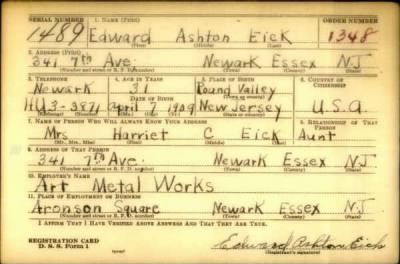 SERIAL NUMBER 1. NAME (Print) ORDER NUMBER
1489 Edward Ashton Eick 1348
(First) (Middle) (Last)
2. ADDRESS (Print)
341 7th Ave. Newark Essex N.J
(Number and street or R. F. D. number) (Town) (County) (State)
3. TELEPHONE 4. AGE IN YEARS 5. PLACE OF BIRTH 6. COUNTRY OF CITIZENSHIP
Newark 31 Pound Valley
DATE OF BIRTH
HU 3-3871 April 7 1909 New Jersey U.S.A
7. NAME OF PERSON WHO WILL ALWAYS KNOW YOUR ADDRESS 8. RELATIONSHIP OF THAT PERSON
Mrs Harriet C Eick Aunt
(Mr., Mrs., Miss) (First) (Middle) (Last)
9. ADDRESS OF THAT PERSON
341 7th Ave. Newark Essex N.J
(Number and street or R. F. D. number) (Town) (County) (State)
10. EMPLOYER'S NAME
Art Metal Works
11. PLACE OF EMPLOYMENT OR BUSINESS
Aronson Square Newark Essex N.J
(Number and street or R. F. D. number) (Town) (County) (State)
I AFFIRM THAT I HAVE VERIFIED ABOVE ANSWERS AND THAT THEY ARE TRUE.
REGISTRATION CARD
D. S. S. Form 1 (over) Edward Ashton Eick
(Registrant's signature)